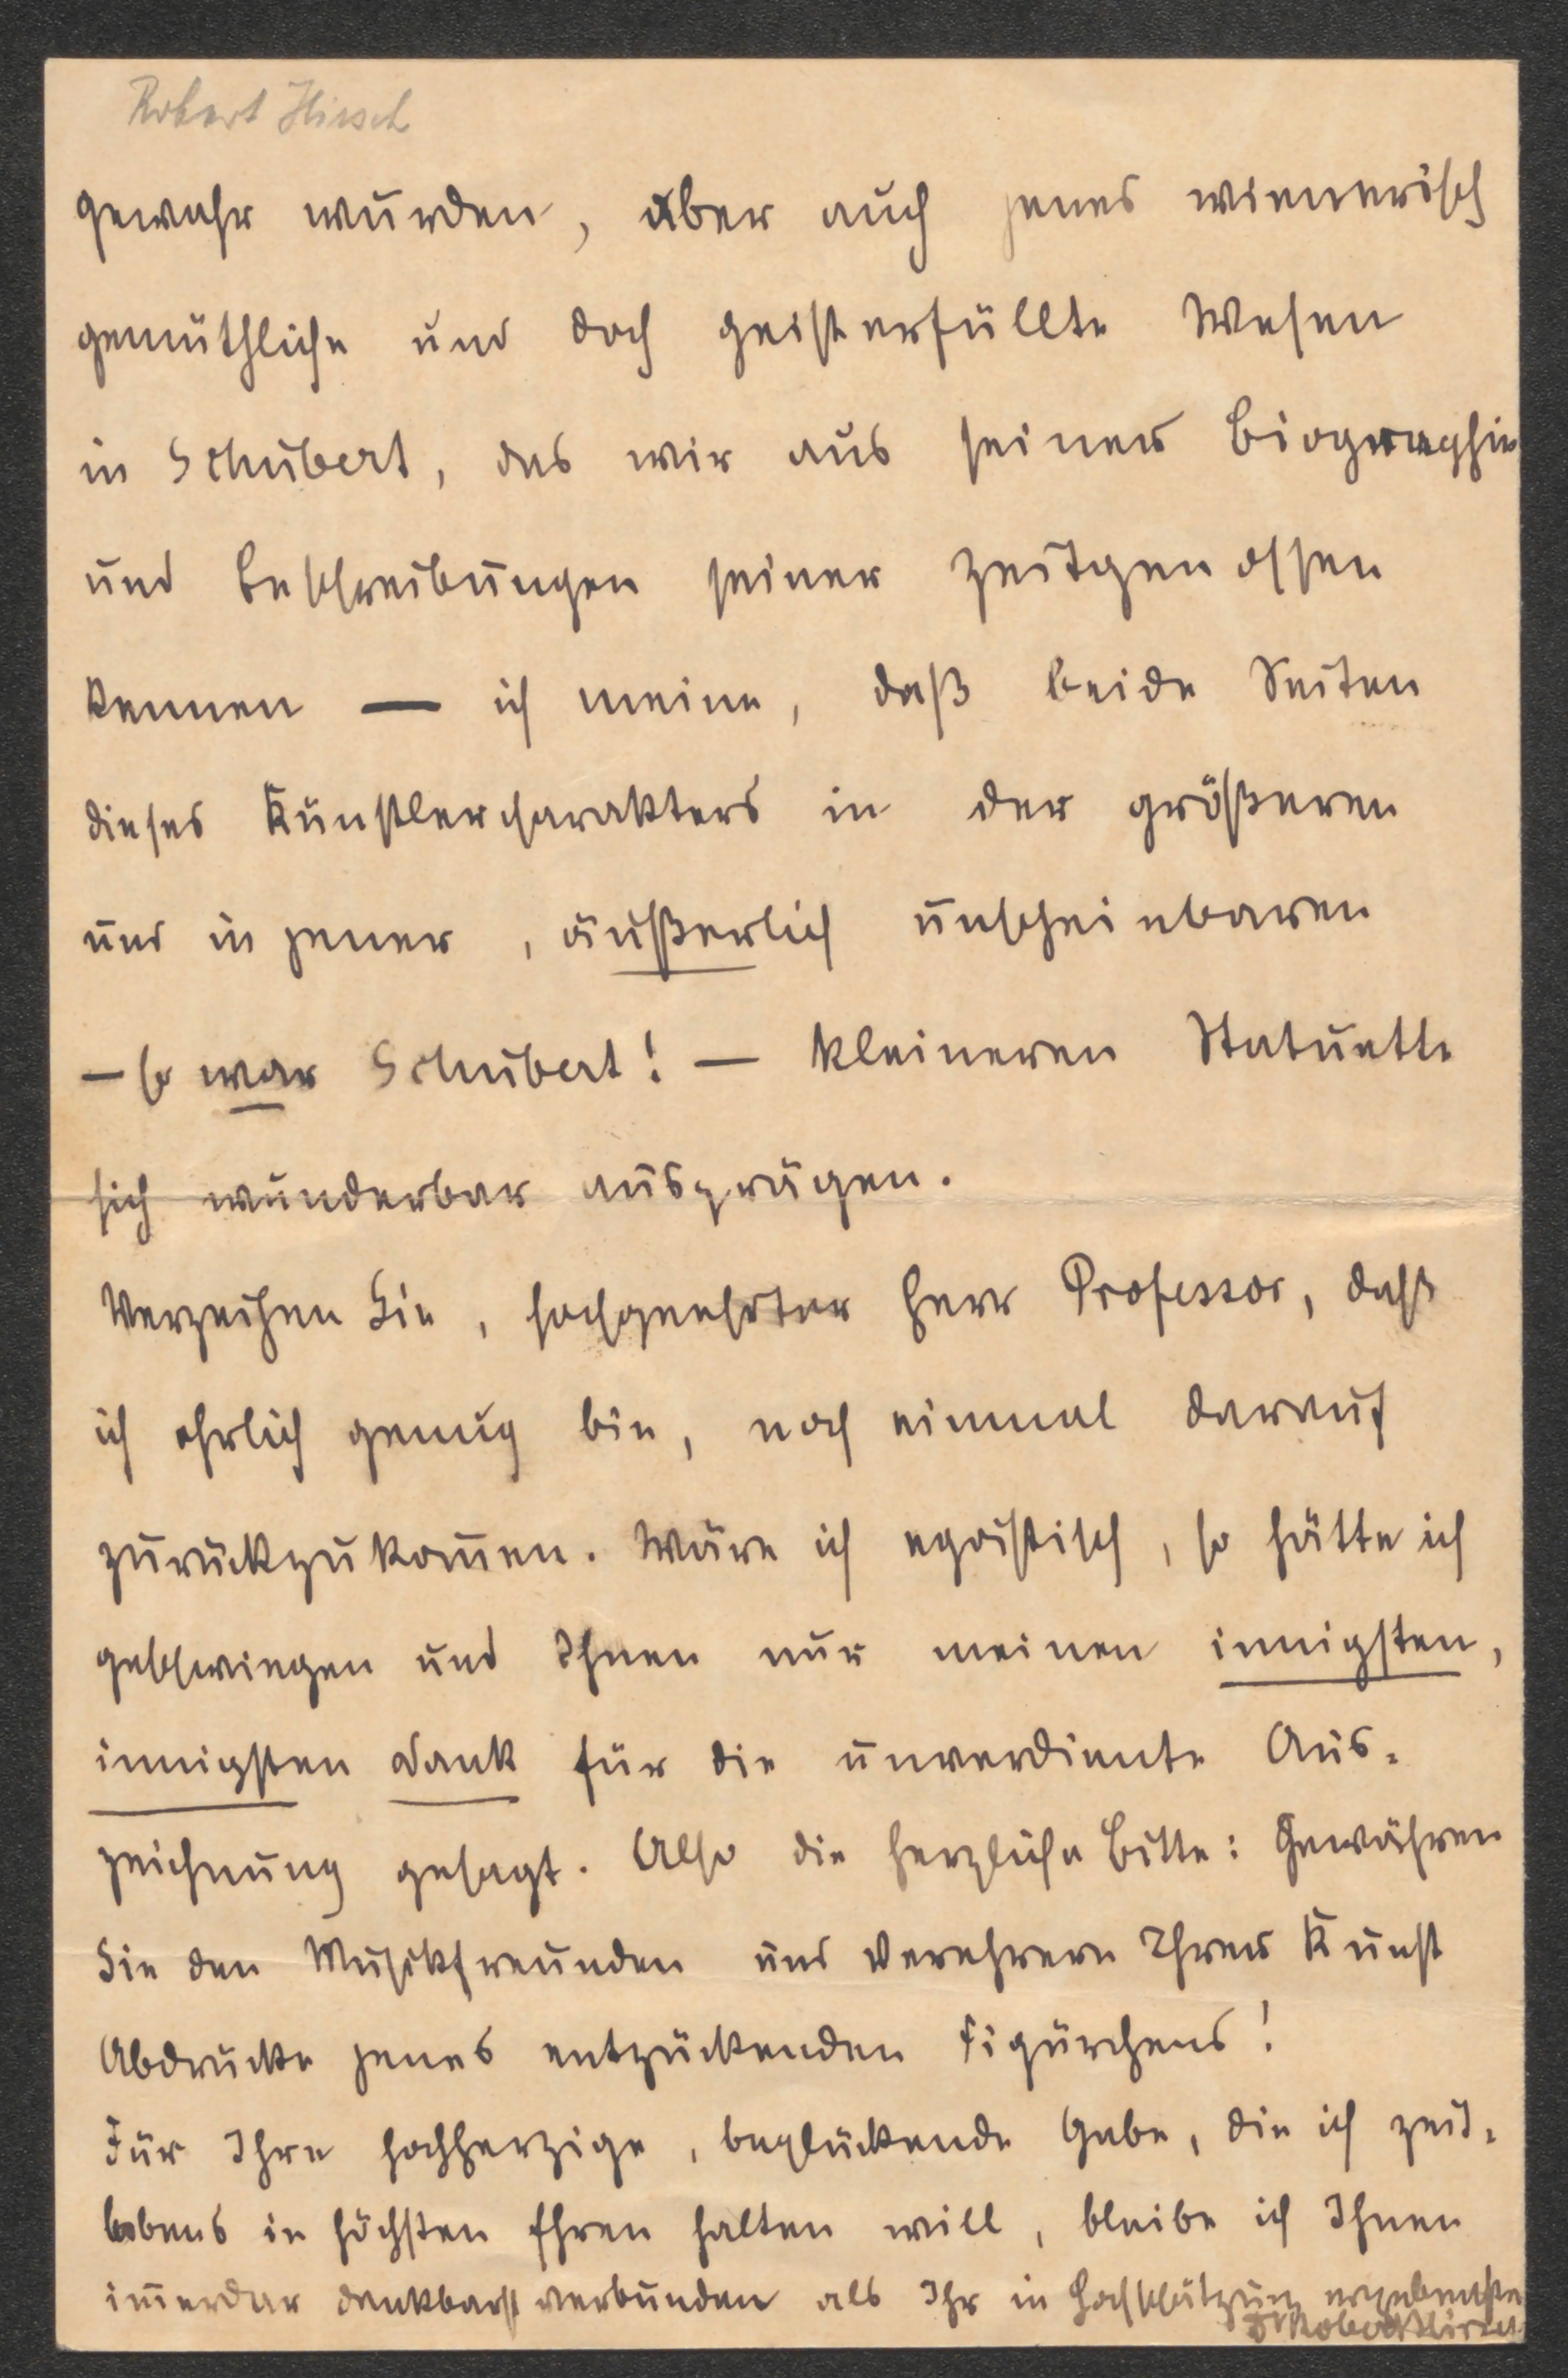 Robert Hirsch
gewahr wurden, aber auch jenes wienerisch
gemüthliche und doch geisterfüllte Wesen
in Schubert, das wir aus seiner Biographie
und Beschreibungen seiner Zeitgenossen
kennen — ich meine, daß beide Seiten
dieses Künstlercharakters in der größeren
und in jener, äußerlich unscheinbaren
— so war Schubert! — kleineren Statuette
sich wunderbar ausprägen.
Verzeihen Sie, hochgeehrter Herr Professor, daß
ich ehrlich genug bin, noch einmal darauf
zurückzukom̅en. Wäre ich egoistisch, so hätte ich
geschwiegen und Ihnen nur meinen innigsten,
innigsten Dank für die unverdiente Aus-
zeichnung gesagt. Also die herzliche Bitte: Gewähren
Sie den Musikfreunden und Verehrern Ihrer Kunst
Abdrücke jenes entzückenden Figürchens!
Für Ihre hochherzige, beglückende Gabe, die ich zeit-
lebens in höchsten Ehren halten will, bleibe ich Ihnen
im̅erdar dankbarst verbunden als Ihr in Hochschätzung ergebenster
Dr Robert Hirsch